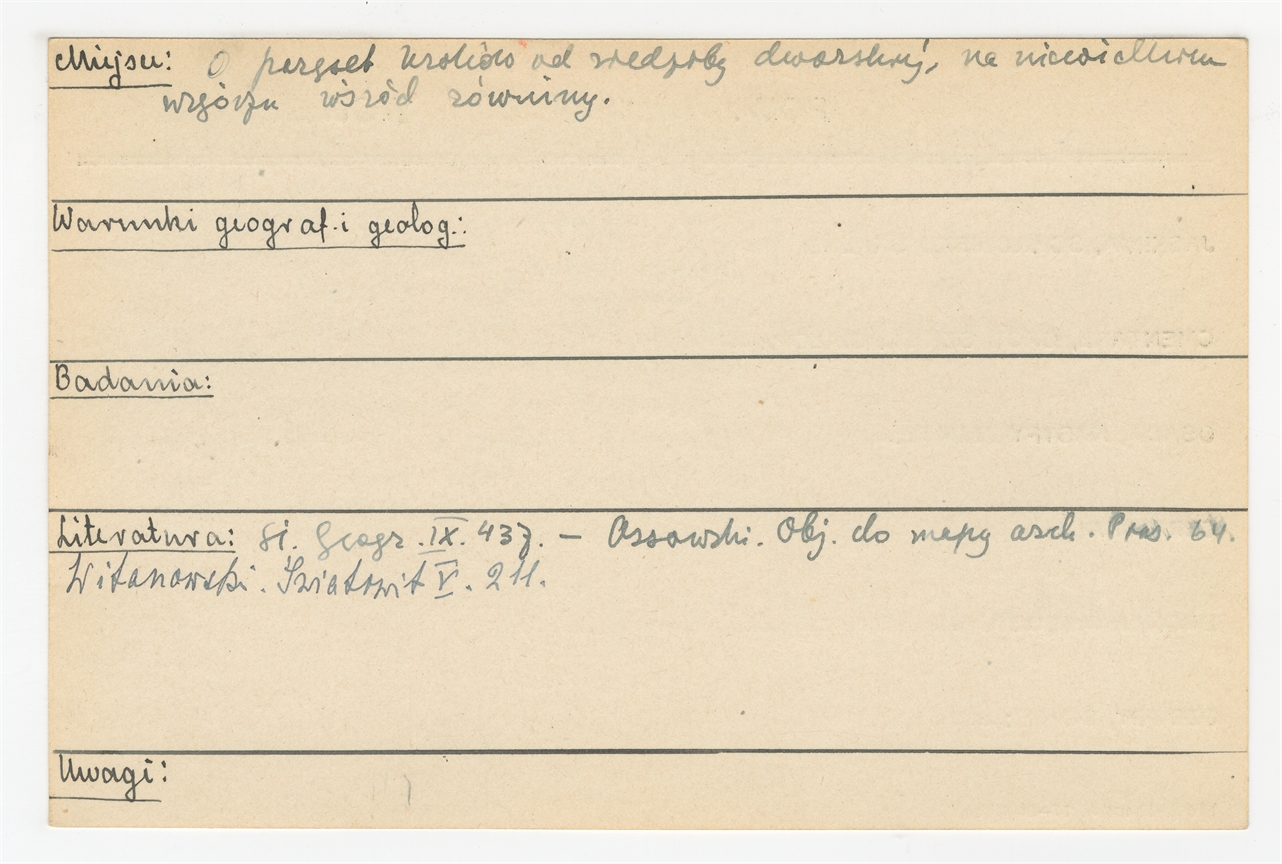 Miejsce: O paręset kroków od siedziby dworskiej, na niewielkiem
wzgórzu wśród równiny.
Warunki geograf. i geolog.:
Badania:
Literatura: Sł. Geogr. IX. 437. – Ossowski. Obj. do mapy arch. Prus. 64.
Witanowski. Światowit V. 211.
Uwagi: